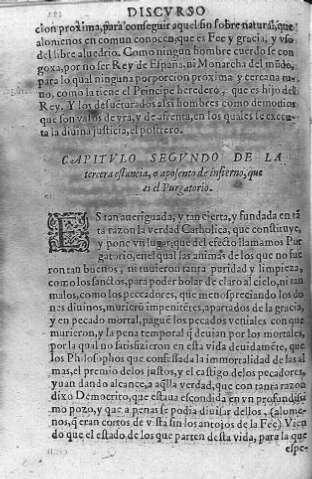 DISCVRSO
cion proxima, para conseguir aquel fin sobre natural, que
alomenos en comun conocen, que es Fee y gracia, y vso
del libre aluedrio. Como ningun hombre cuerdo se con
goxa, por no ser Rey de España, ni Monarcha del mũdo,
para lo qual ninguna porporcion proxima y cercana tu-
no, como la tiene el Principe heredero, que es hijo del
Rey. Y los desuẽturados assi hombres como demonios
que son vasos de yra, y de afrenta, en los quales se execu-
ta la diuina justicia, el postrero.
CAPITVLO SEGVNDO DE LA
tercera estancia, o aposento de infierno, que
es el Purgatorio.
ES tan aueriguada, y tan cierta, y fundada en tã
ta razon la verdad Catholica, que constituye,
y pone vn lugar, que del efecto llamamos Pur
gatorio, en el qual las animas de los que no fue
ron tan buenos, ni tuuieron tanta puridad y limpieza,
como los sanctos, para bolar de claro al cielo, ni tan
malos, como los peccadores, que menospreciando los do
nes diuinos, muriero impenitẽtes, apartados de la gracia,
y en pecado mortal, pague los pecados veniales con que
murieron, y la pena temporal q̃ deuian por los mortales,
por la qual no satisfizieron en esta vida deuidamẽte, que
los Philosophos que confessada la immortalidad de las al
mas, el premio de los justos, y el castigo de los pecadores,
yuan dando alcance, a aq̃lla verdad, que con tanta razon
dixo Democrito, que estaua escondida en vn profundissi
mo pozo, y que a penas se podia diuisar dellos, (alome-
nos, q̃ eran cortos de vista sin los antojos de la Fee) Vien
do que el estado de los que parten desta vida, para la que
espe-